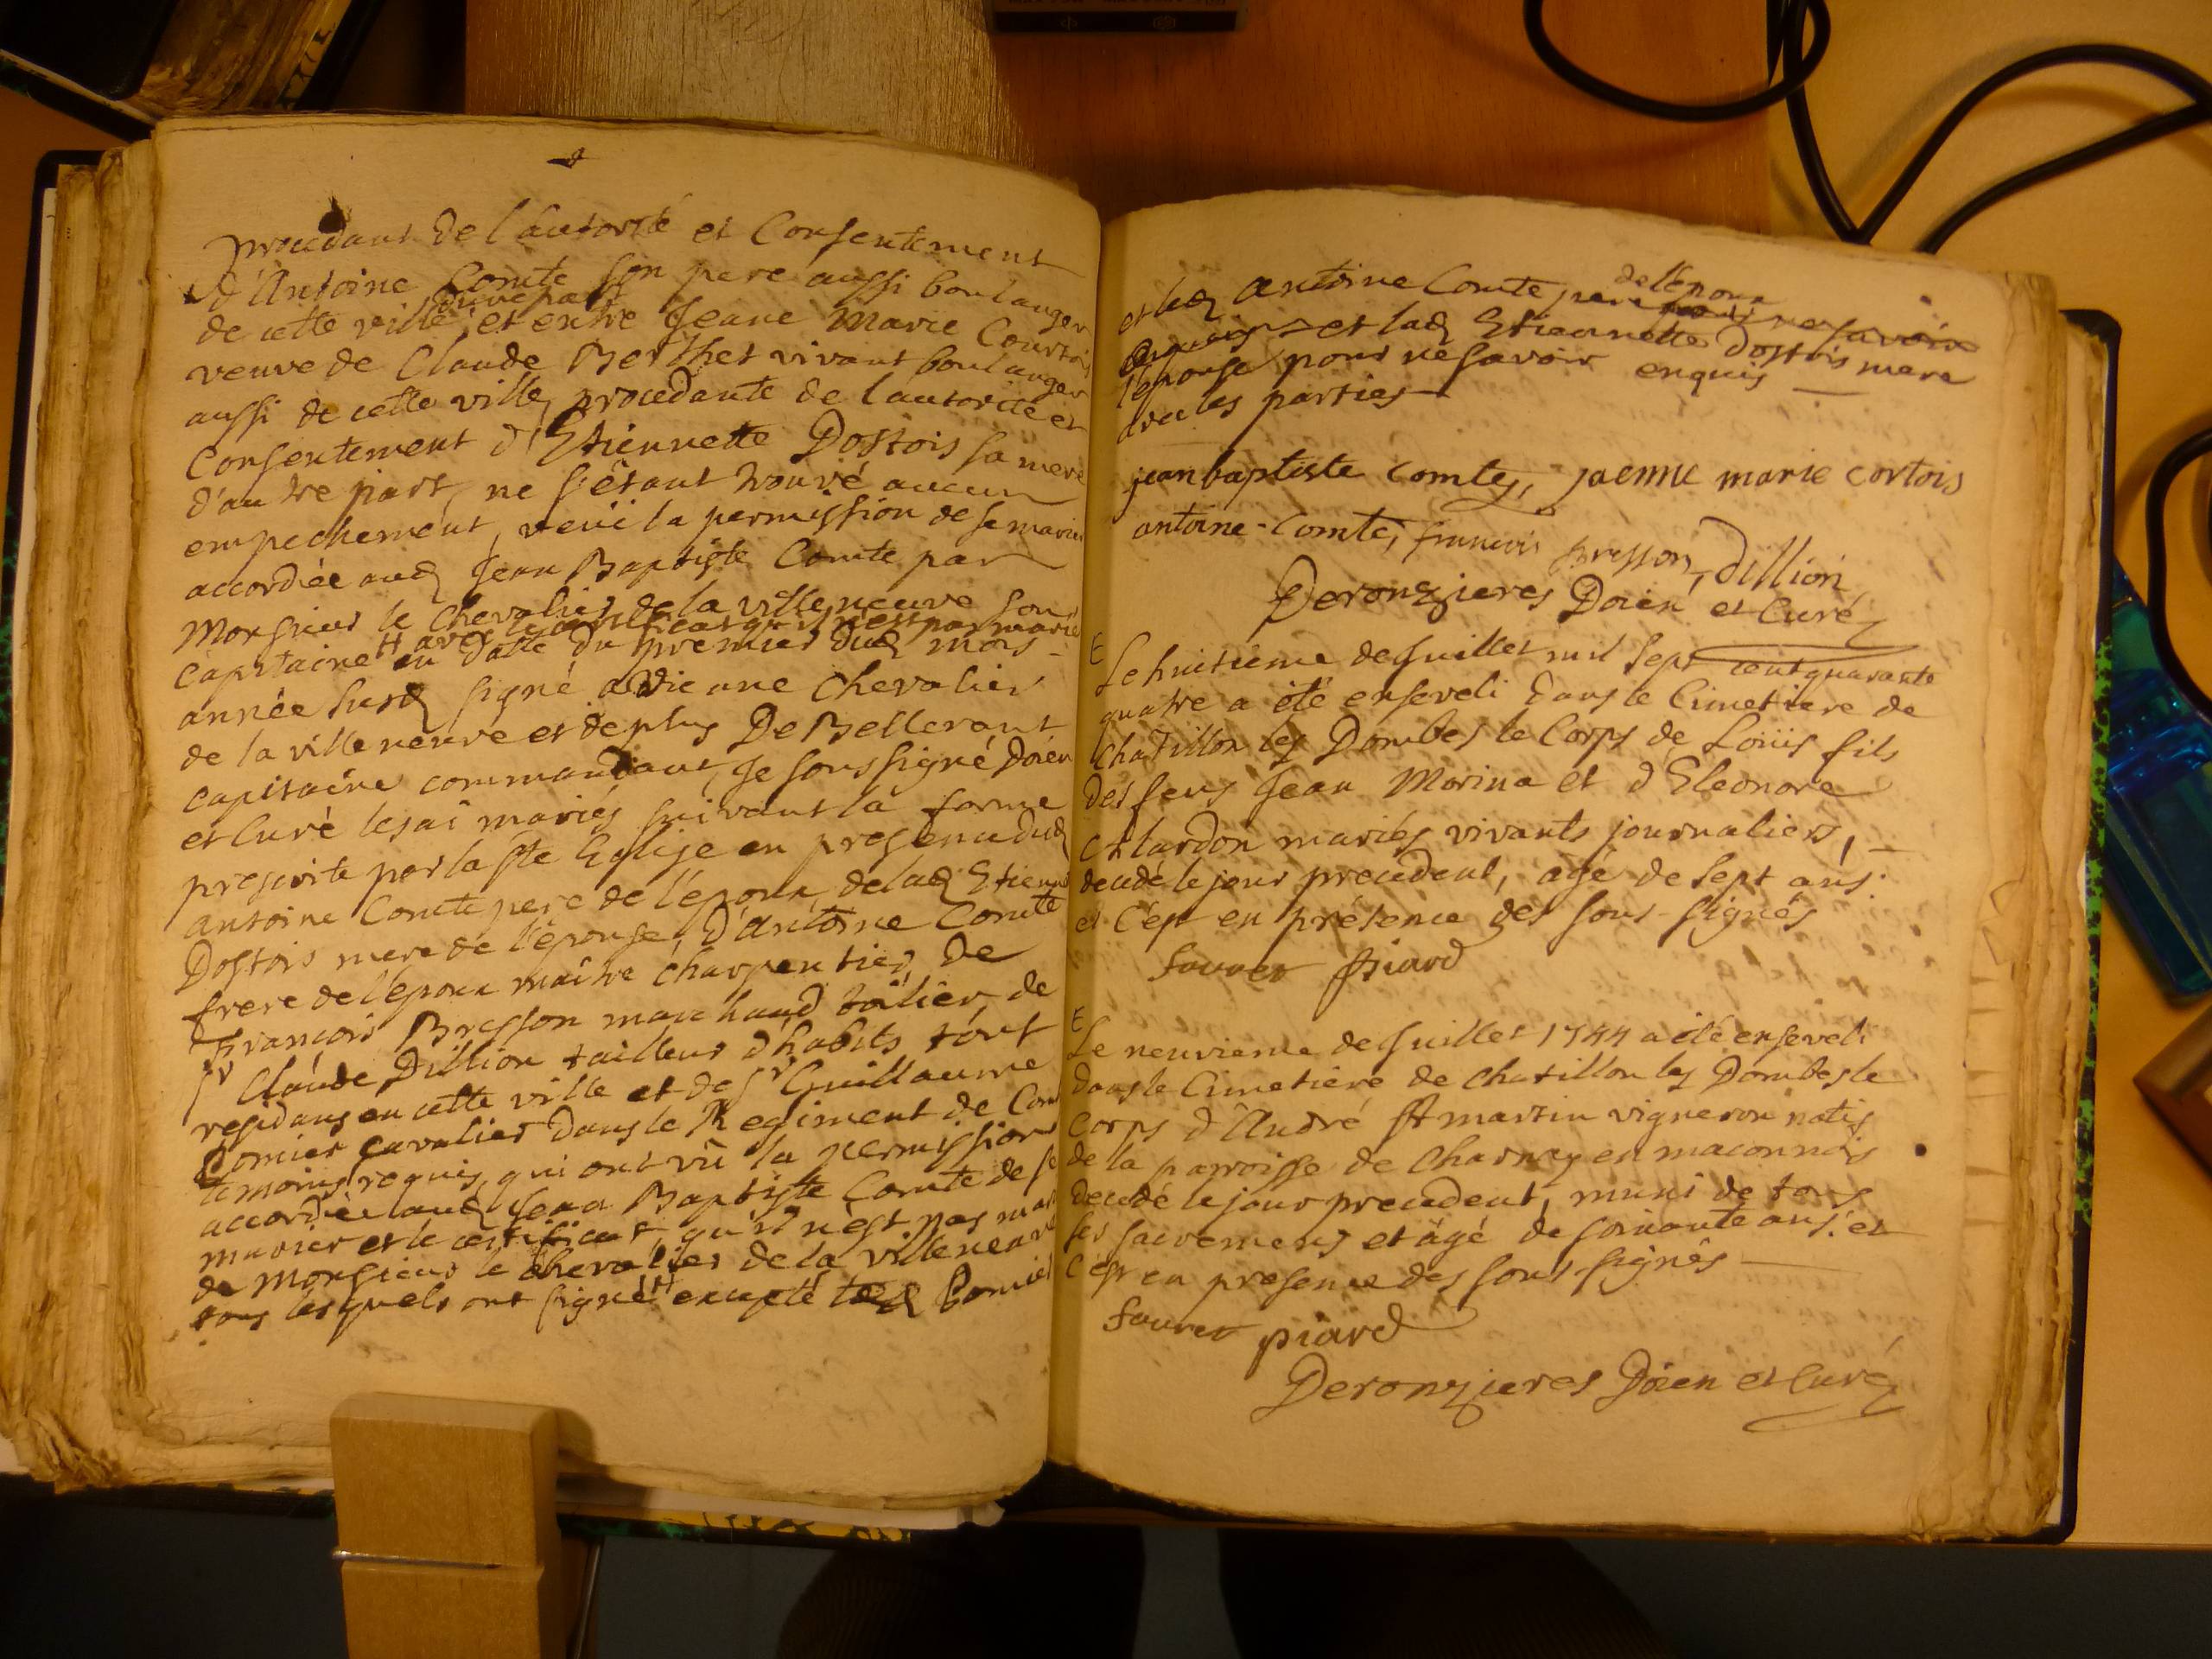 procedant de l'autorité et Consentement
d'Antoine Comte son pere aussi boulanger
d'une part
de cette ville, et entre Jeane Marie Courtois
veuve de Claude Berthet vivant boulanger
aussi de cette ville, procedante de l'autorité et
Consentement d'Etiennette Dostois sa mere
d'autre part, ne s'étant trouvé aucun
empechement, veüe la permission de se marier
accordée aud Jean Baptiste Comte par
Monsieur le Chevalier de la villeneuve son
avec le certificat qu'il n'est pas marié
Capitaine H en datte du premier dud mois
année susd signé a Vienne Chevalier
de la villeneuve et de plus De Bellerant
capitaine commandant, Je soussigné Doïen
et Curé les ai mariés suivant la forme
prescrite par la Ste Eglise en presence dud
antoine Comte pere de l'époux, de lad Etiennette
Dostois mere de l'épouse, d'Antoine Comte
frere de l'époux maitre charpentier, de
François Bresson marchand toilier, de
Sr Claude Dillion tailleur d'habits tout
residans en cette ville et de Sr Guillaume
Pomier cavalier dans le Regiment de
temoins requis, qui ont vû la permission
accordée aud Jean Baptiste Comte de se
marier et le certificat, qu'il n'est pas
de Monsieur le chevalier de la villeneuve
tous lesquels ont signé H excepté led Pomier
et led antoine Comte pere
de l'époux
et lad Etiennette Dostois mere
l'épouse pour ne savoir enquis
avec les parties
jean baptiste comte, jaenne marie cortois
antoine - comte, francois bresson, Dillion
Deronzieres Doïen et Curé
E
Le huitieme de Juillet mil sept cent quarante
quatre a été enseveli dans le Cimetiere de
Chatillon les Dombes le Corps de Loüis fils
des feus Jean Morina et d'Eleonore
Alardon mariés vivants journaliers,
decedé le jour precedent, agé de sept ans:
et c'est en présence des sous-signés
favrer piard
E
Le neuvieme de Juillet 1744 a été enseveli
dans le Cimetière de Chatillon les Dombes le
Corps d'André St martin vigneron natif
de la parroisse de Charnay en maconnois
decedé le jour precedent, muni de tous
ses sacremens et âgé de soixante ans: et
c'est en presence des sous-signés
favrer piard
Deronzieres Doïen et Curé